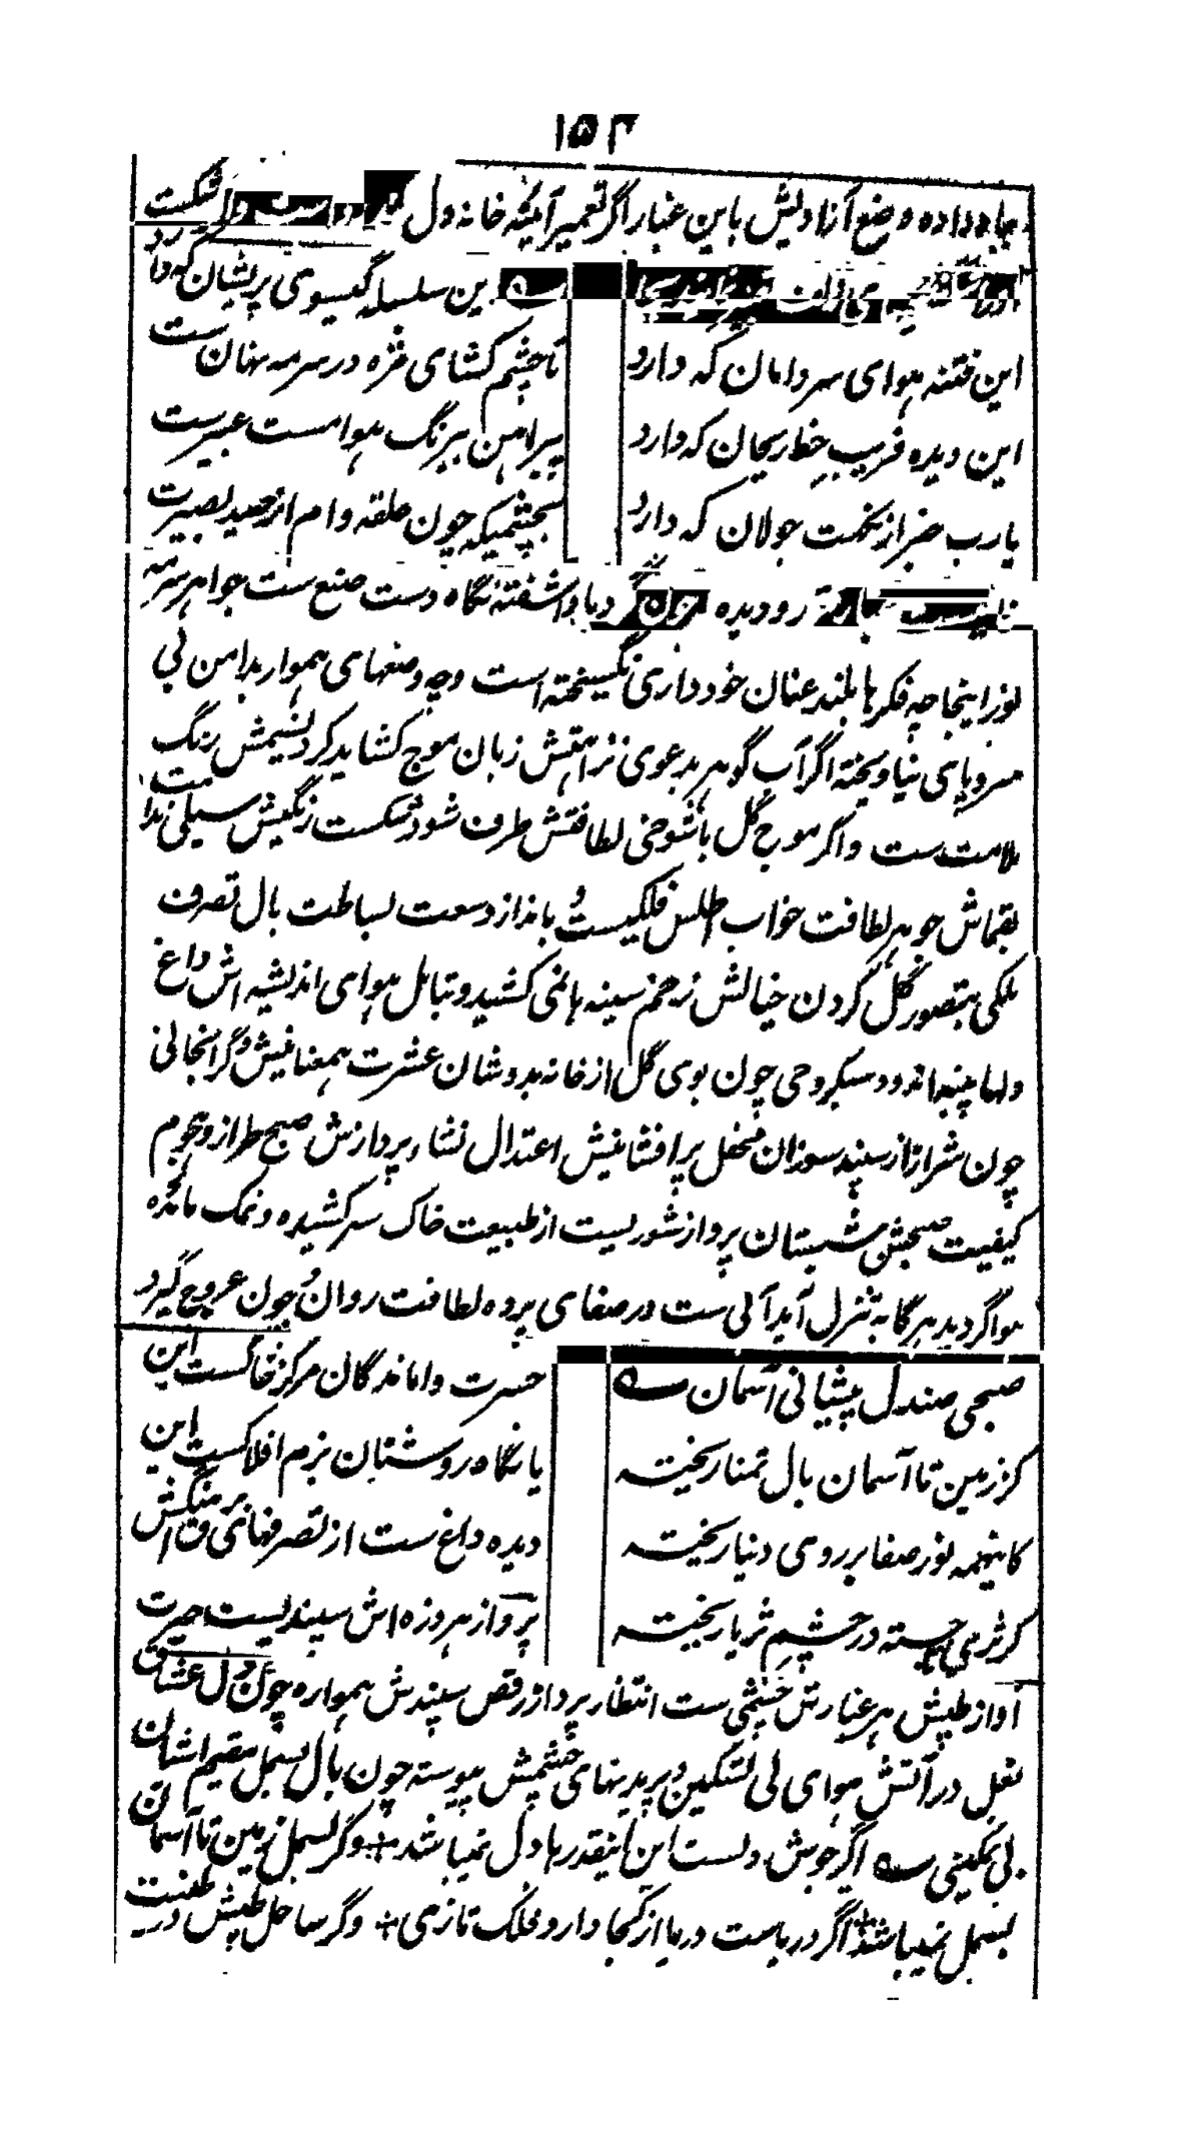 ۱۵۳
جا داده وضع آزادیش باین غبار اگر تعمیر آئینه خانه دل شکست
ین سلسله گیسوی پریشان که دارد
این فتنه هوای سر دامان که دارد تا چشم کشای مژه در سرمه نهان ست
این دیده فریب خط ریحان که دارد پیراهن بیرنگ هوا مست عبیرست
یارب خبر از نکهت جولان که دارد بچشمیکه چون حلقه دام از صید بصیرت
رو دیده آشفته نگاه دست صنع ست جواهر سرمه
نور اینجا چه فکرها بلند عنان خودداری نگسیخته است وچه وضعهای هموار بدامن بی
سر و پای نیاویخته اگر آب گوهر بدعوی نزاهتش زبان موج کشاید گرد نسیمش رنگ
ملامت ست و اگر موج گل باشوخی لطافتش طرف شود شکست رنگش سیلی ندامت
بقماش جوهر لطافت خواب اطلس فلکیست و بانداز وسعت بساطت بال تصرف
ملکی بتصور گل کردن خیالش زخم سینه ها نمی کشید و تبامل هوای اندیشه اش داغ
دلها پنبه اندود سبکروحی چون بوی گل از خانه بدوشان عشرت همعنانیش و گرانجانی
چون شرار از سپند سوزان محفل پرافشانیش اعتدال نشاء پردازش صبح طراز و هجوم
کیفیت صبحش شبستان پرواز شوریست از طبیعت خاک سر کشیده و نمک مائده
هوا گردیده هرگاه به تنزل آید آبی ست در صفای پرده لطافت روان و چون عروج گیرد
صبحی صندل پیشانی آسمان حسرت واماندگان مرکز خاکست این
کز زمین تا آسمان بال تمنا ریخته یا نگاه روشنان بزم افلاکست این
کاینهمه نور صفا بر روی دنیا ریخته دیده داغ ست از تصرفهای
کز ثری جسته در چشم ثریا ریخته پرواز هر ذره اش سپندیست حیرت
آواز طپش هر غبارش چشمی ست انتظار پرداز رقص سپندش همواره چون دل عشاق
نعل در آتش هوای بی تسکین و پریدنهای چشمش پیوسته چون بال بسمل مقیم آشیان
بی تمکینی اگر جوش دلست این اینقدرها دل نمیباشد وگر بسمل زمین تا آسمان
بسمل نمیباشد اگر دریاست دریا از کجا دارد فلک تازی وگر ساحل طپش در